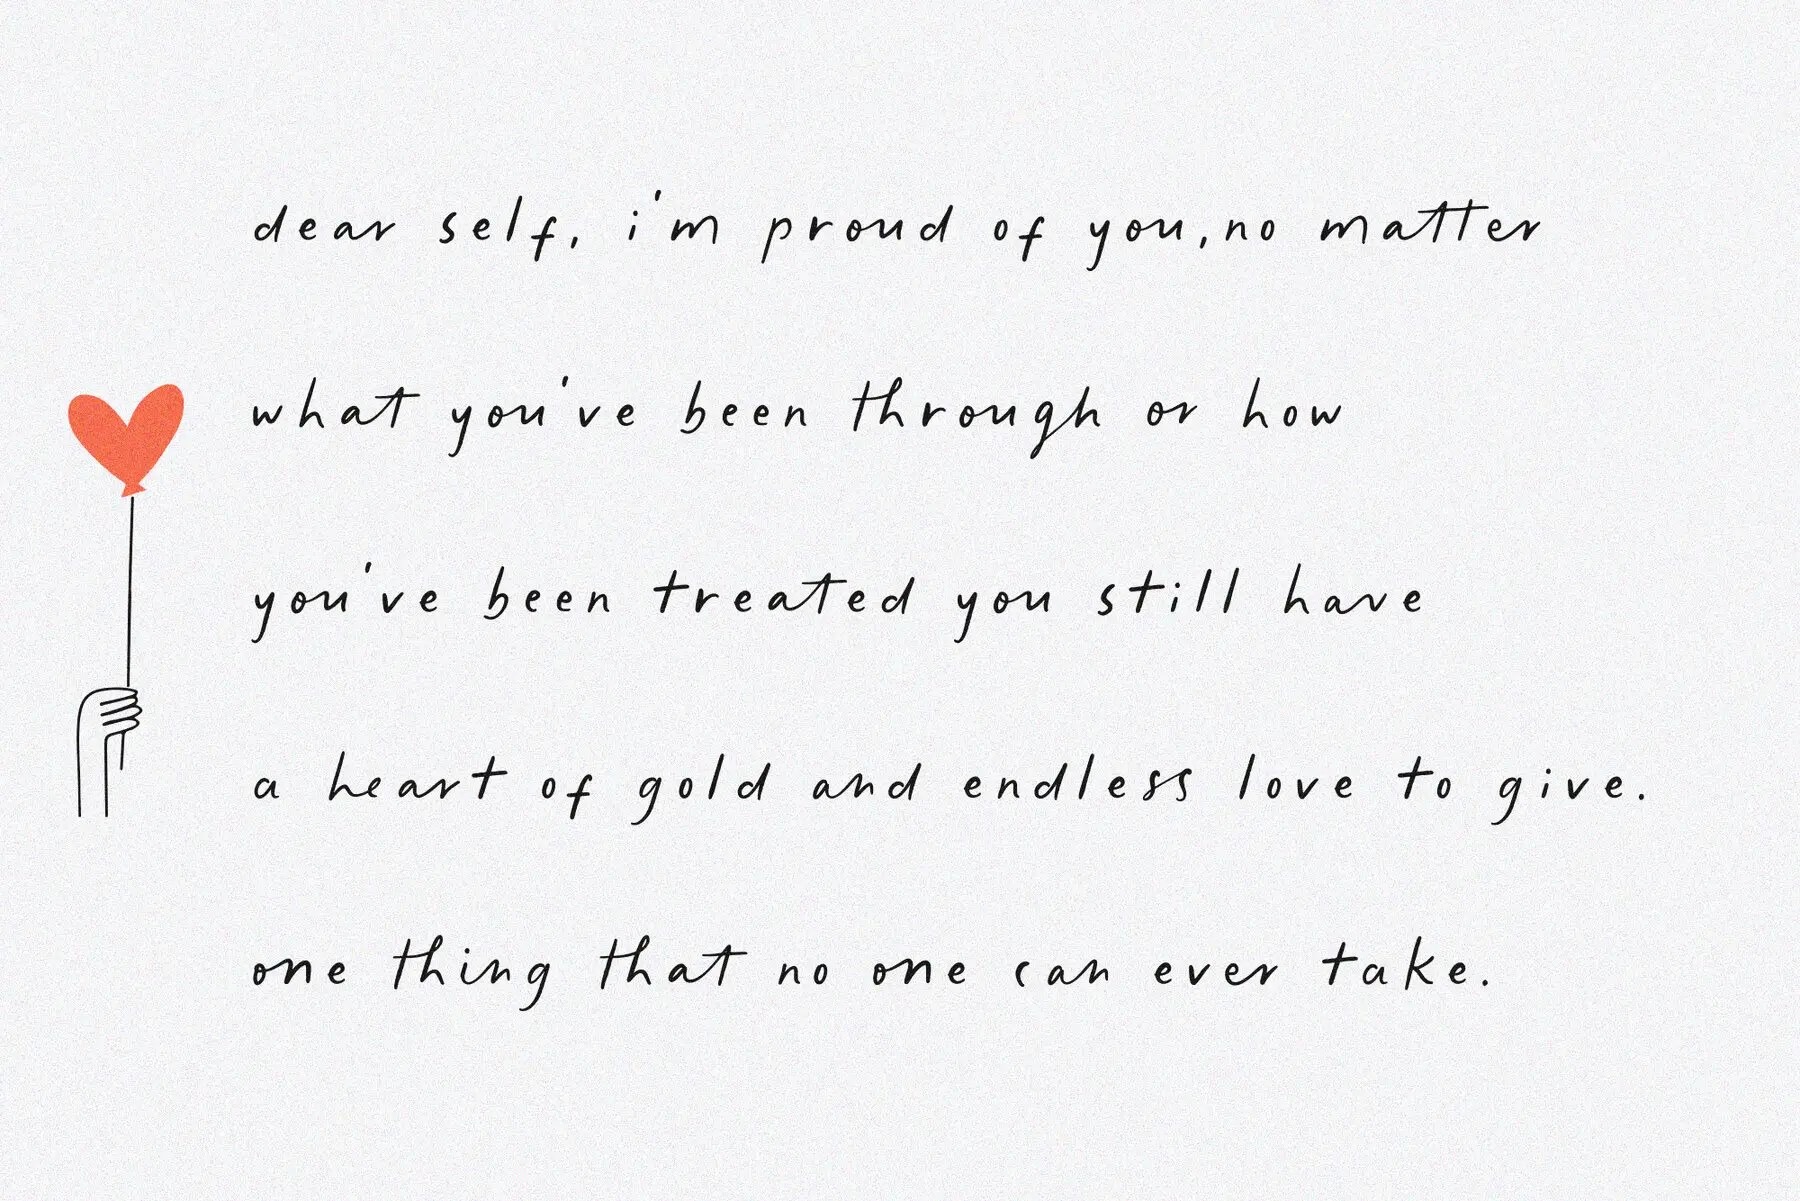 dear self, i'm proud of you,no matter
what you've been through or how
you've been treated you still have
a heart of gold and endless love to give.
one thing that no one can ever take.